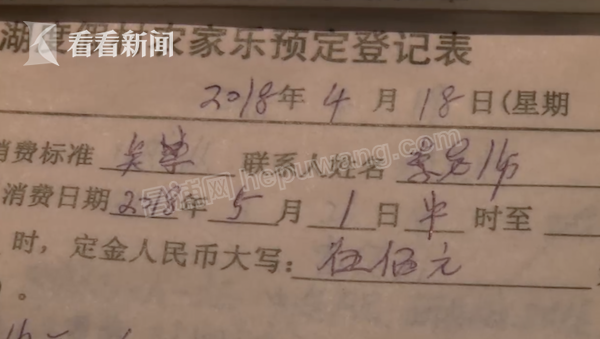 看看新闻
湖度假村农家乐预定登记表
2018年 4 月 18 日(星期
消费标准 联系人姓名
消费日期2018年 5 月 1 日 中 时至
时,定金人民币大写: 伍佰元
)。